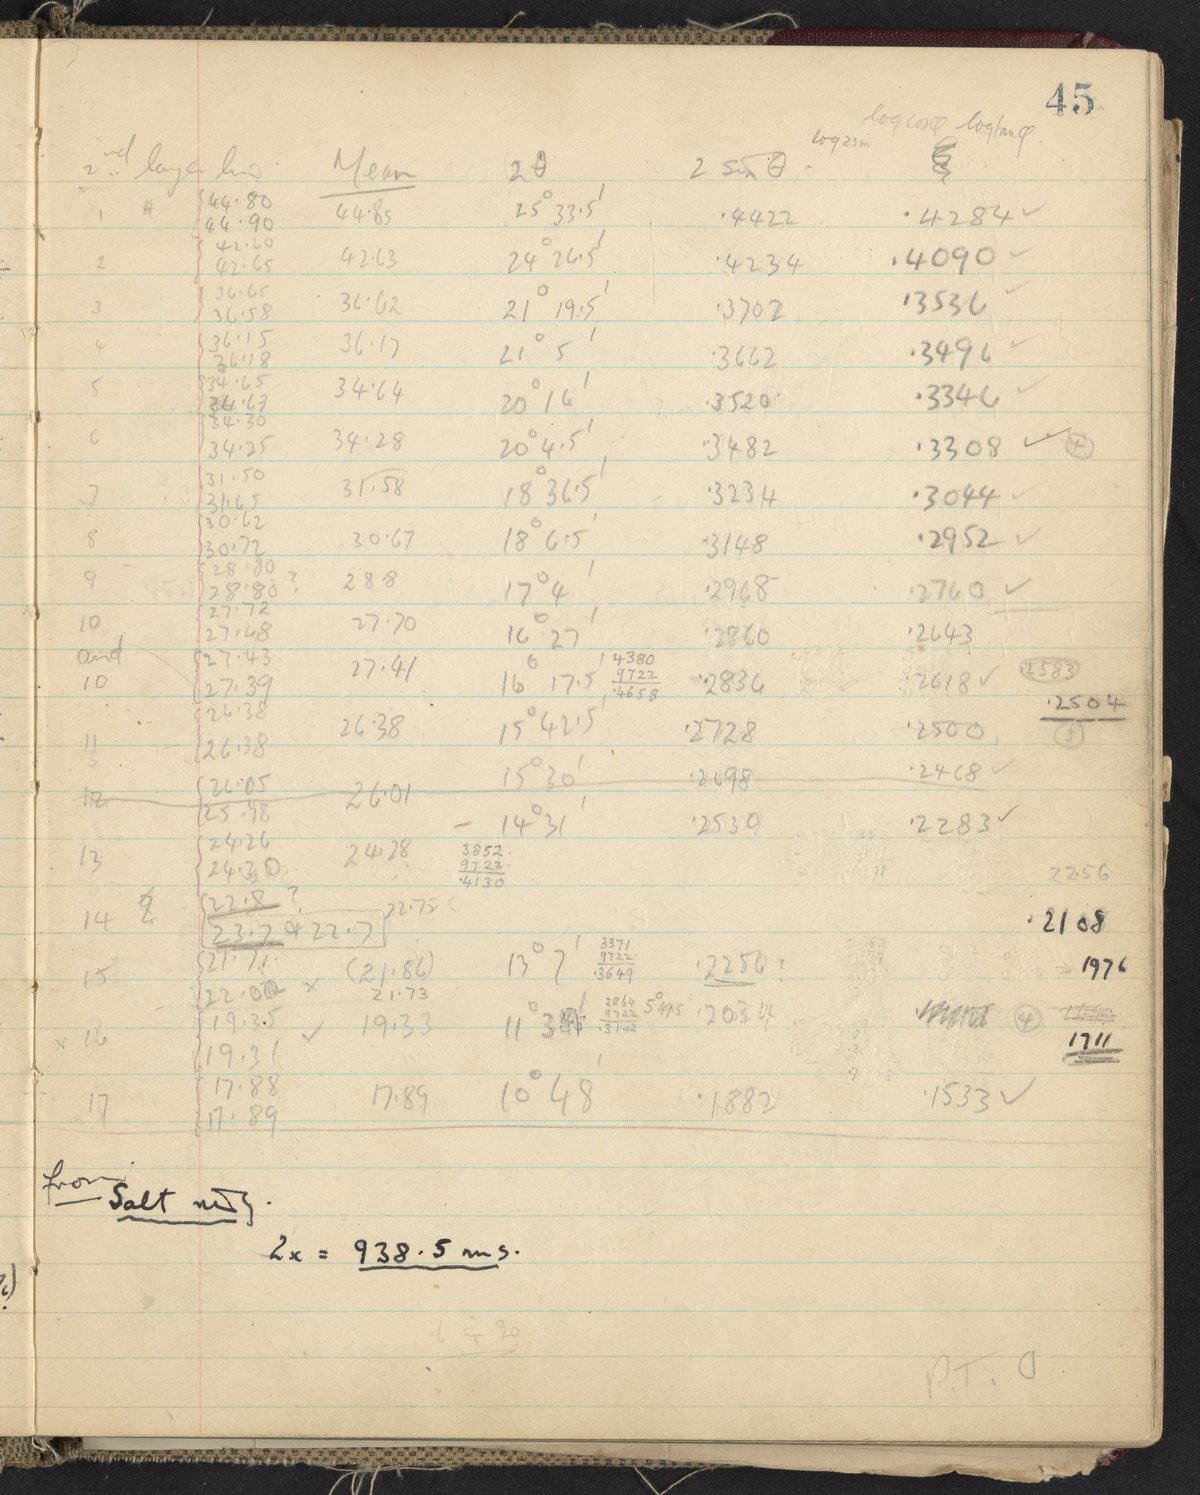 45
log 2 sin log cos φ log tan φ
2nd layer line Mean 2θ 2 sin θ ξ
44.80
1 " 44.90 44.85 25° 33.5' .4422 .4284 ✓
42.60
2 42.65 42.63 24° 26.5' .4234 .4090 ✓
36.65
3 36.58 36.62 21° 19.5' .3702 .3536 ✓
36.15
4 36.18 36.17 21° 5' .3662 .3496 ✓
34.65
5 34.63 34.64 20° 16' .3520 .3346 ✓
34.30
6 34.25 34.28 20° 4.5' .3482 .3308 ✓ 4
31.50
7 31.65 31.58 18° 36.5' .3234 .3044 ✓
30.62
8 30.72 30.67 18° 6.5' .3148 .2952 ✓
28.80
9 28.80 ? 28.8 17° 4' .2968 .2760 ✓
27.72
10 27.68 27.70 16° 27' .2860 .2643
and 27.43 4380
10 27.39 27.41 16° 17.5' 9722 .2836 .2618 ✓ 2583
.4658
.2504
26.38
11 26.38 26.38 15° 42.5' .2728 .2500
15° 30' .2698 .2468 ✓
26.05
12 25.98 26.01
14° 31' .2530 .2283 ✓
24.26
13 24.30 24.28 3852
9722 2256
.4130
22.8 ? 22.75
14 23.7 & 22.7 .2108
21.71 3371
15 (21.86) 13° 7' 9722 .2256 ? 1976
22.00 x 21.73 .3649
19.35 2864
x 16 ✓ 19.33 11° 9722 .2034 4
19.31 .3142 1711
17.88
17 17.89 17.89 10° 48' .1882 .1533 ✓
from
Salt
2x = 938.5 ms.
P.T.O